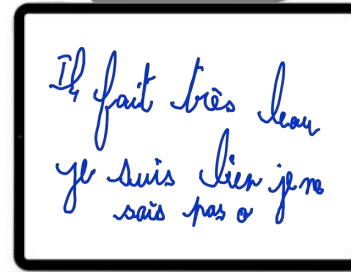 Il fait très beau
je suis bien je ne
sais pas o